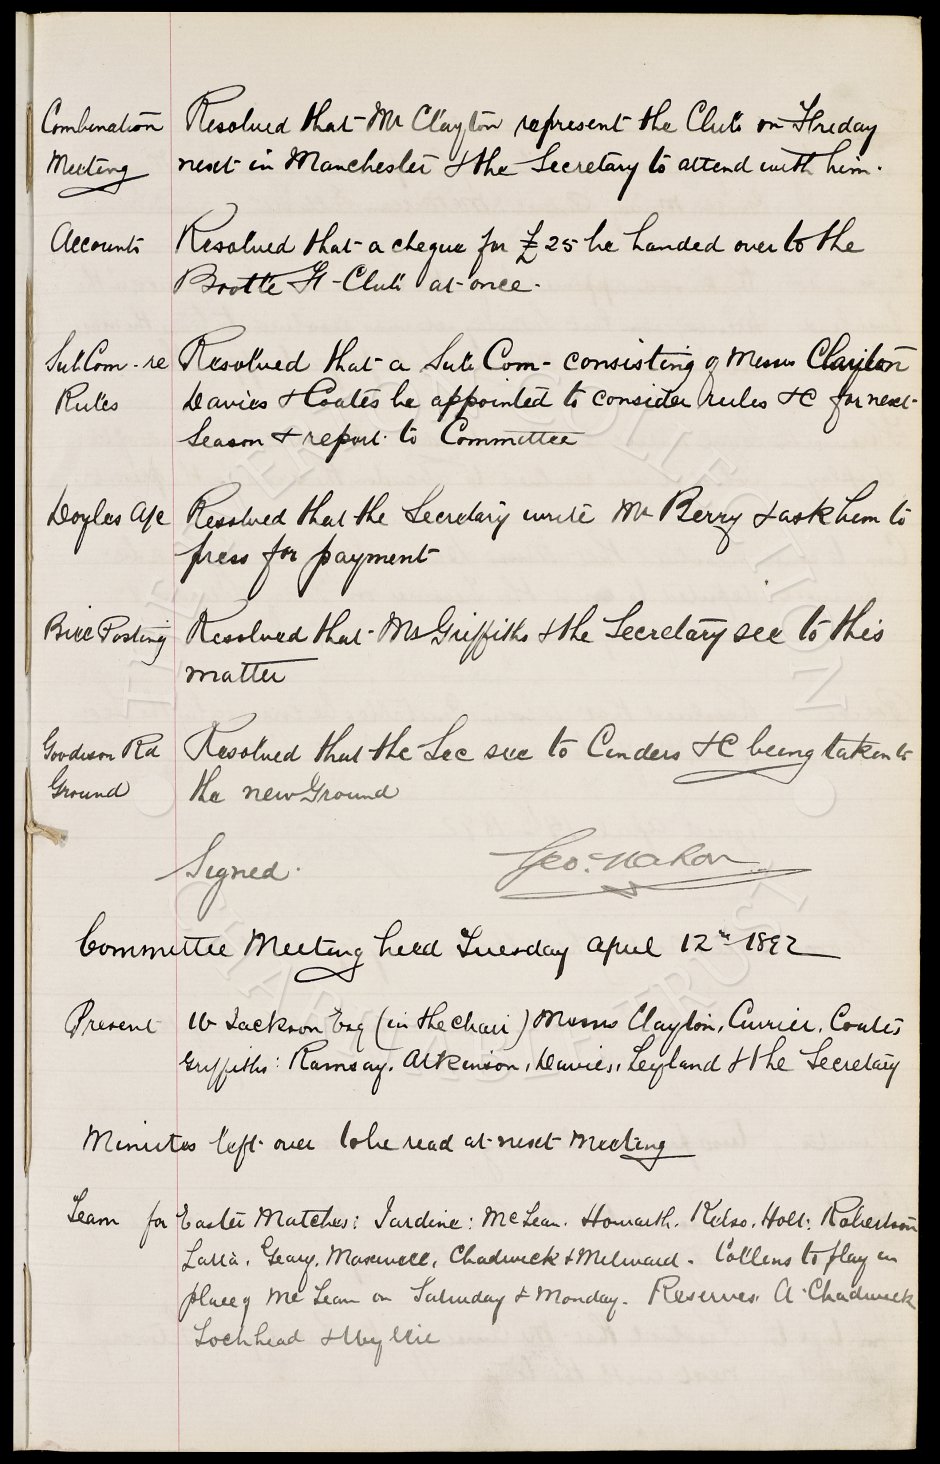 Combination Resolved that Mr Clayton represent the Club on Friday
Meeting next in Manchester & the Secretary to attend with him.
Accounts Resolved that a cheque for £25 be handed over to the
Bootle F-Club at once.
Sub Com - re Resolved that a Sub Com - consisting of Messrs Clayton
Rules Davies & Coates be appointed to consider rules &C for next
Season & report to Committee
Doyles a/c Resolved that the Secretary write Mr Berry & ask him to
press for payment
Bill Posting Resolved that Mr Griffiths & the Secretary see to this
matter
Goodison Rd Resolved that the Sec see to Cinders &C being taken to
Ground the new Ground
Signed. Geo. Mahon
Committee Meeting held Tuesday April 12th 1892
Present W Jackson Esq (in the chair) Messrs Clayton, Currier, Coates
Griffiths: Ramsay, Atkinson, Davies, Leyland & the Secretary
Minutes left over to be read at next Meeting
Team for Easter Matches: Jardine: McLean. Howarth. Kelso, Holt: Robertson
Latta, Geary, Maxwell, Chadwick & Milward - Collens to play in
place of McLean on Saturday & Monday - Reserves A. Chadwick
Lochhead & Wyllie
THE EVERTON COLLECTION
CHARITABLE TRUST